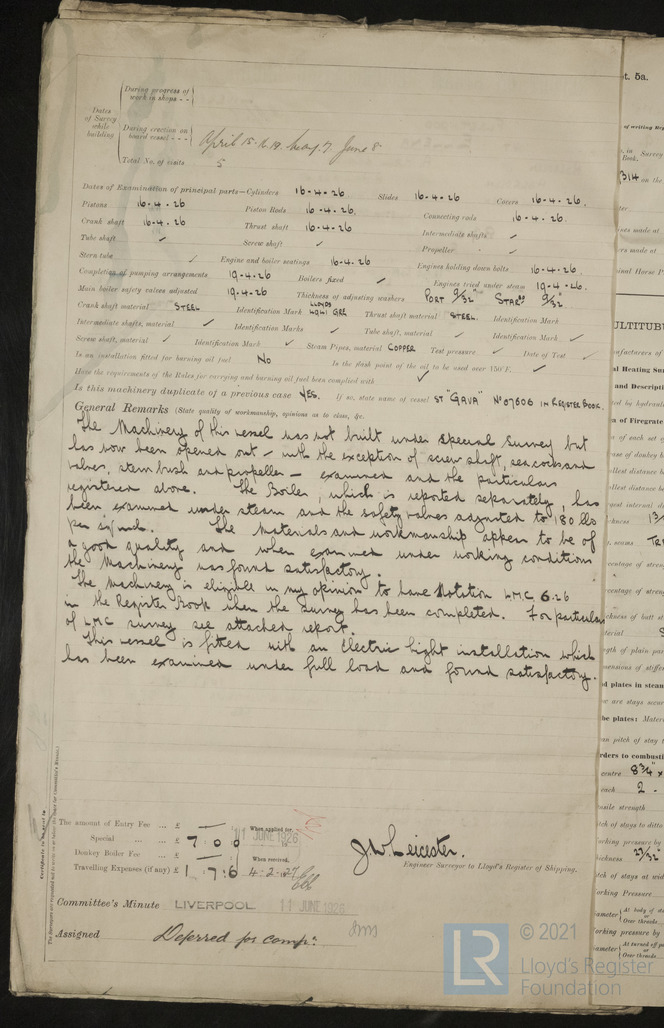 During progress of
work in shops - -
Dates
of Survey
while
building
During erection on
board vessel - - -
April 15. 16. 19. May. 7. June 8
Total No. of visits 5
Dates of Examination of principal parts—Cylinders 16-4-26 Slides 16-4-26 Covers 16-4-26.
Pistons 16-4-26 Piston Rods 16-4-26. Connecting rods 16-4-26.
Crank shaft 16-4-26 Thrust shaft 16-4-26 Intermediate shafts ✓
Tube shaft ✓ Screw shaft ✓ Propeller ✓
Stern tube ✓ Engine and boiler seatings 16-4-26 Engines holding down bolts 16-4-26.
Completion of pumping arrangements 19-4-26 Boilers fixed ✓ Engines tried under steam 19-4-26.
Main boiler safety valves adjusted 19-4-26 Thickness of adjusting washers PORT 9/32" STARD 9/32"
Crank shaft material STEEL Identification Mark LLOYDS GRL Thrust shaft material STEEL. Identification Mark
Intermediate shafts, material ✓ Identification Marks ✓ Tube shaft, material ✓ Identification Mark ✓
Screw shaft, material ✓ Identification Mark ✓ Steam Pipes, material COPPER Test pressure ✓ Date of Test ✓
Is an installation fitted for burning oil fuel NO Is the flash point of the oil to be used over 150°F. ✓
Have the requirements of the Rules for carrying and burning oil fuel been complied with ✓
Is this machinery duplicate of a previous case YES. If so, state name of vessel ST "GAVA" No 07606 IN REGISTER BOOK.
General Remarks (State quality of workmanship, opinions as to class, &c.
The Machinery of this vessel was not built under Special Survey but
has now been opened out - with the exception of screw shaft, sea cocks and
valves, stern bush and propeller - examined and the particulars
registered above. The Boiler, which is reported separately, has
been examined under steam and the safety valves adjusted to 180 lbs
per sq inch. The materials and workmanship appear to be of
a good quality and when examined under working conditions
the Machinery was found satisfactory.
The Machinery is eligible in my opinion to have Notation LMC 6.26
in the Register Book when the survey has been completed. For particulars
of LMC survey see attached report.
This vessel is fitted with an Electric Light installation which
has been examined under full load and found satisfactory.
The amount of Entry Fee ... £
Special ... ... £ 7 : 0 : 0
Donkey Boiler Fee ... £
Travelling Expenses (if any) £ 1 : 7 : 6
When applied for,
11 JUNE 1926
When received,
4-2-27
J. W. Leicester.
Engineer Surveyor to Lloyd's Register of Shipping.
Committee's Minute LIVERPOOL 11 JUNE 1926
Assigned Deferred for compn.
Certificate to be sent to
The Surveyors are requested not to write on or below the space for Committee's Minute.
© 2021
LR
Lloyd's Register
Foundation